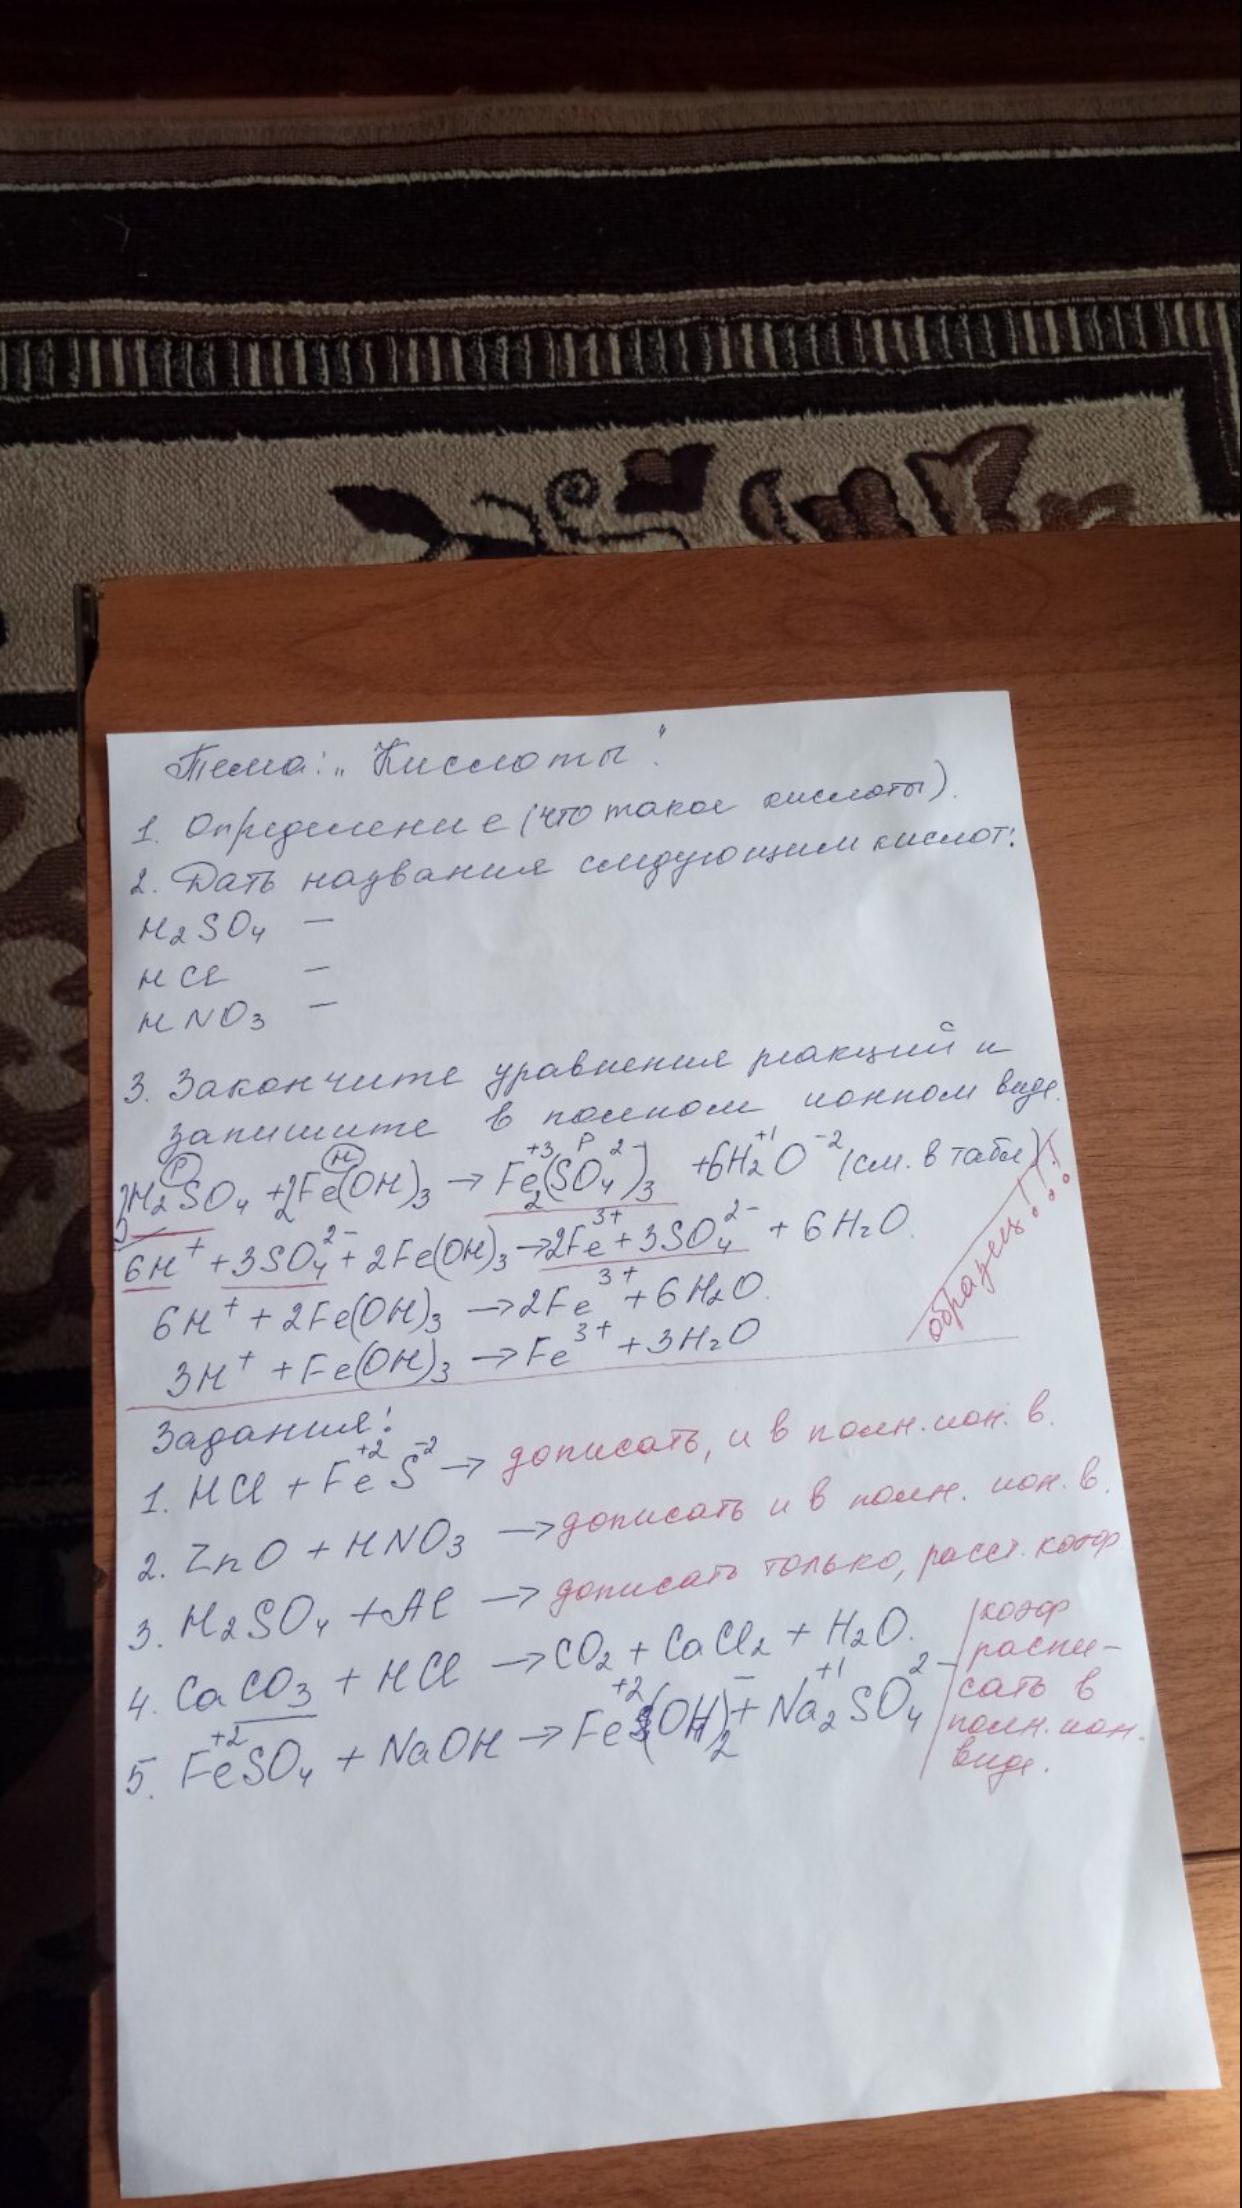 Тема: „Кислоты".
1. Определение (что такое кислоты).
2. Дать названия следующим кислот:
H₂SO₄ —
HCl —
HNO₃ —
3. Закончите уравнения реакций и
запишите в полном ионном виде.
3H₂SO₄ + 2Fe(OH)₃ → Fe₂⁺³(SO₄²⁻)₃ + 6H₂⁺¹O⁻² (см. в табл)
6H⁺ + 3SO₄²⁻ + 2Fe(OH)₃ → 2Fe³⁺ + 3SO₄²⁻ + 6H₂O.
6H⁺ + 2Fe(OH)₃ → 2Fe³⁺ + 6H₂O.
3H⁺ + Fe(OH)₃ → Fe³⁺ + 3H₂O
образец!!!
Задания:
1. HCl + Fe⁺²S⁻² → дописать, и в полн. ион. в.
2. ZnO + HNO₃ → дописать и в полн. ион. в.
3. H₂SO₄ + Al → дописать только, расст. коэф.
4. CaCO₃ + HCl → CO₂ + CaCl₂ + H₂O.
5. Fe⁺²SO₄ + NaOH → Fe⁺²(OH)₂⁻ + Na₂⁺¹SO₄²⁻
коэф
распи-
сать в
полн. ион.
виде.